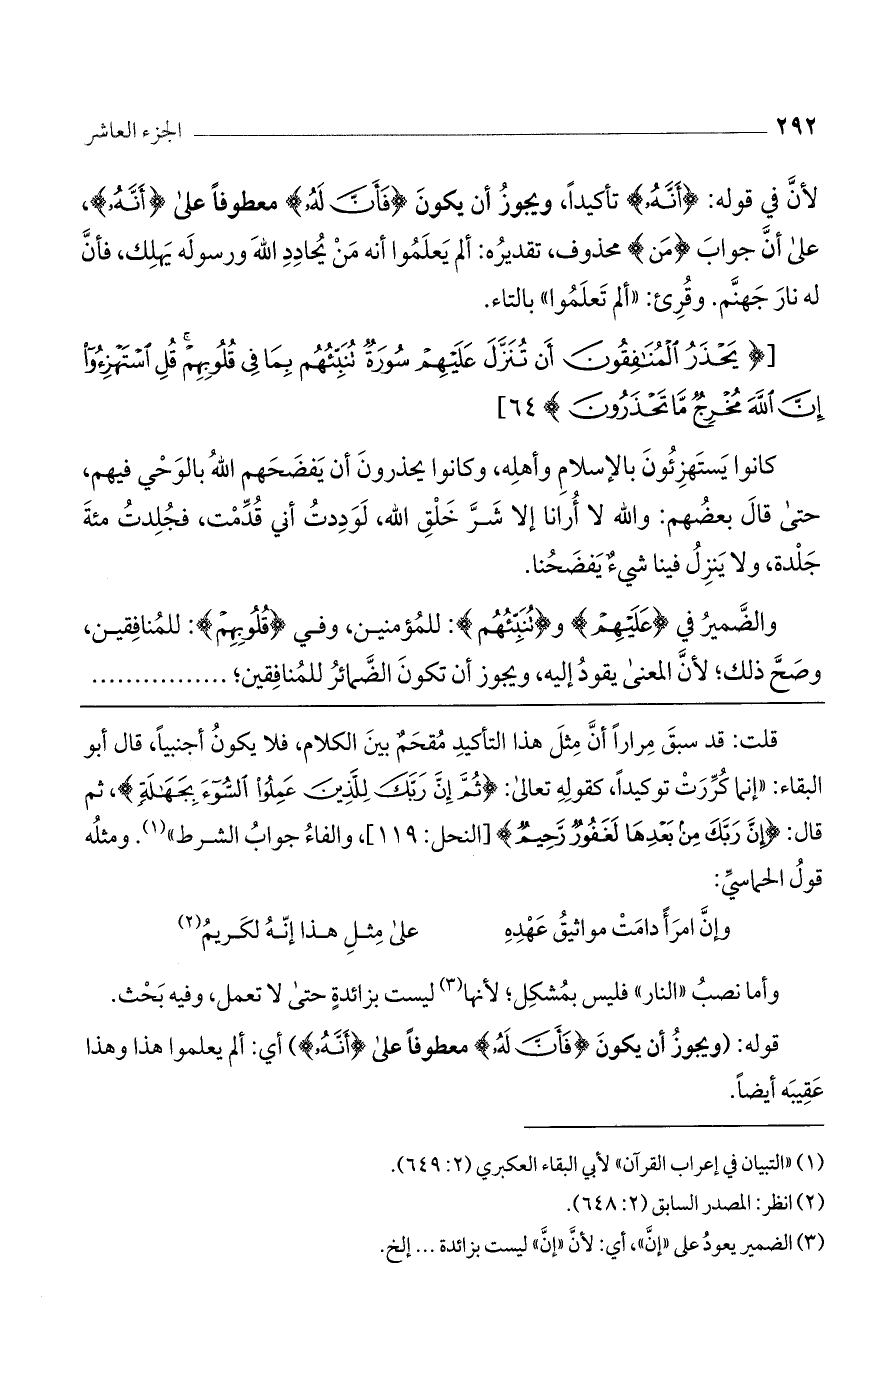 ٢٩٢ الجزء العاشر
لأنَّ في قوله: ﴿أَنَّهُۥ﴾ تأكيداً، ويجوزُ أن يكونَ ﴿فَأَنَّ لَهُۥ﴾ معطوفاً علىٰ ﴿أَنَّهُۥ﴾،
علىٰ أنَّ جوابَ ﴿مَن﴾ محذوف، تقديرُه: ألم يَعلَمُوا أنه مَنْ يُحادِدِ اللهَ ورسولَه يَهلِك، فأنَّ
له نارَ جَهنَّم. وقُرِئ: «ألم تَعلَمُوا» بالتاء.
[﴿يَحْذَرُ ٱلْمُنَٰفِقُونَ أَن تُنَزَّلَ عَلَيْهِمْ سُورَةٌ تُنَبِّئُهُم بِمَا فِى قُلُوبِهِمْ ۚ قُلِ ٱسْتَهْزِءُوٓا۟
إِنَّ ٱللَّهَ مُخْرِجٌ مَّا تَحْذَرُونَ﴾ ٦٤]
كانوا يَستَهزِئُونَ بالإسلامِ وأهلِه، وكانوا يحذرونَ أن يَفضَحَهم اللهُ بالوَحْيِ فيهم،
حتىٰ قالَ بعضُهم: والله لا أُرانا إلا شَرَّ خَلْقِ الله، لَوَدِدتُ أني قُدِّمْت، فجُلِدتُ مئةَ
جَلْدة، ولا يَنزِلُ فينا شيءٌ يَفضَحُنا.
والضَّميرُ في ﴿عَلَيْهِمْ﴾ و﴿تُنَبِّئُهُم﴾: للمُؤمنين، وفي ﴿قُلُوبِهِمْ﴾: للمُنافِقين،
وصَحَّ ذلك؛ لأنَّ المعنىٰ يقودُ إليه، ويجوز أن تكونَ الضَّمائرُ للمُنافِقين؛ ................
قلت: قد سبقَ مِراراً أنَّ مِثلَ هذا التأكيدِ مُقحَمٌ بينَ الكلام، فلا يكونُ أجنبياً، قال أبو
البقاء: «إنما كُرِّرَتْ توكيداً، كقولِهِ تعالىٰ: ﴿ثُمَّ إِنَّ رَبَّكَ لِلَّذِينَ عَمِلُوا۟ ٱلسُّوٓءَ بِجَهَٰلَةٍ﴾، ثم
قال: ﴿إِنَّ رَبَّكَ مِنۢ بَعْدِهَا لَغَفُورٌ رَّحِيمٌ﴾ [النحل: ١١٩]، والفاءُ جوابُ الشرط»(١). ومثلُه
قولُ الحماسيِّ:
وإنَّ امرَأً دامَتْ مواثيقُ عَهْدِهِ علىٰ مِثلِ هذا إنّهُ لكَريمُ(٢)
وأما نصبُ «النار» فليس بمُشكِل؛ لأنها(٣) ليست بزائدةٍ حتىٰ لا تعمل، وفيه بَحْث.
قوله: (ويجوزُ أن يكونَ ﴿فَأَنَّ لَهُۥ﴾ معطوفاً علىٰ ﴿أَنَّهُۥ﴾) أي: ألم يعلموا هذا وهذا
عَقِيبَه أيضاً.
(١) «التبيان في إعراب القرآن» لأبي البقاء العكبري (٢: ٦٤٩).
(٢) انظر: المصدر السابق (٢: ٦٤٨).
(٣) الضمير يعودُ على «إنَّ»، أي: لأنَّ «إنَّ» ليست بزائدة ... إلخ.